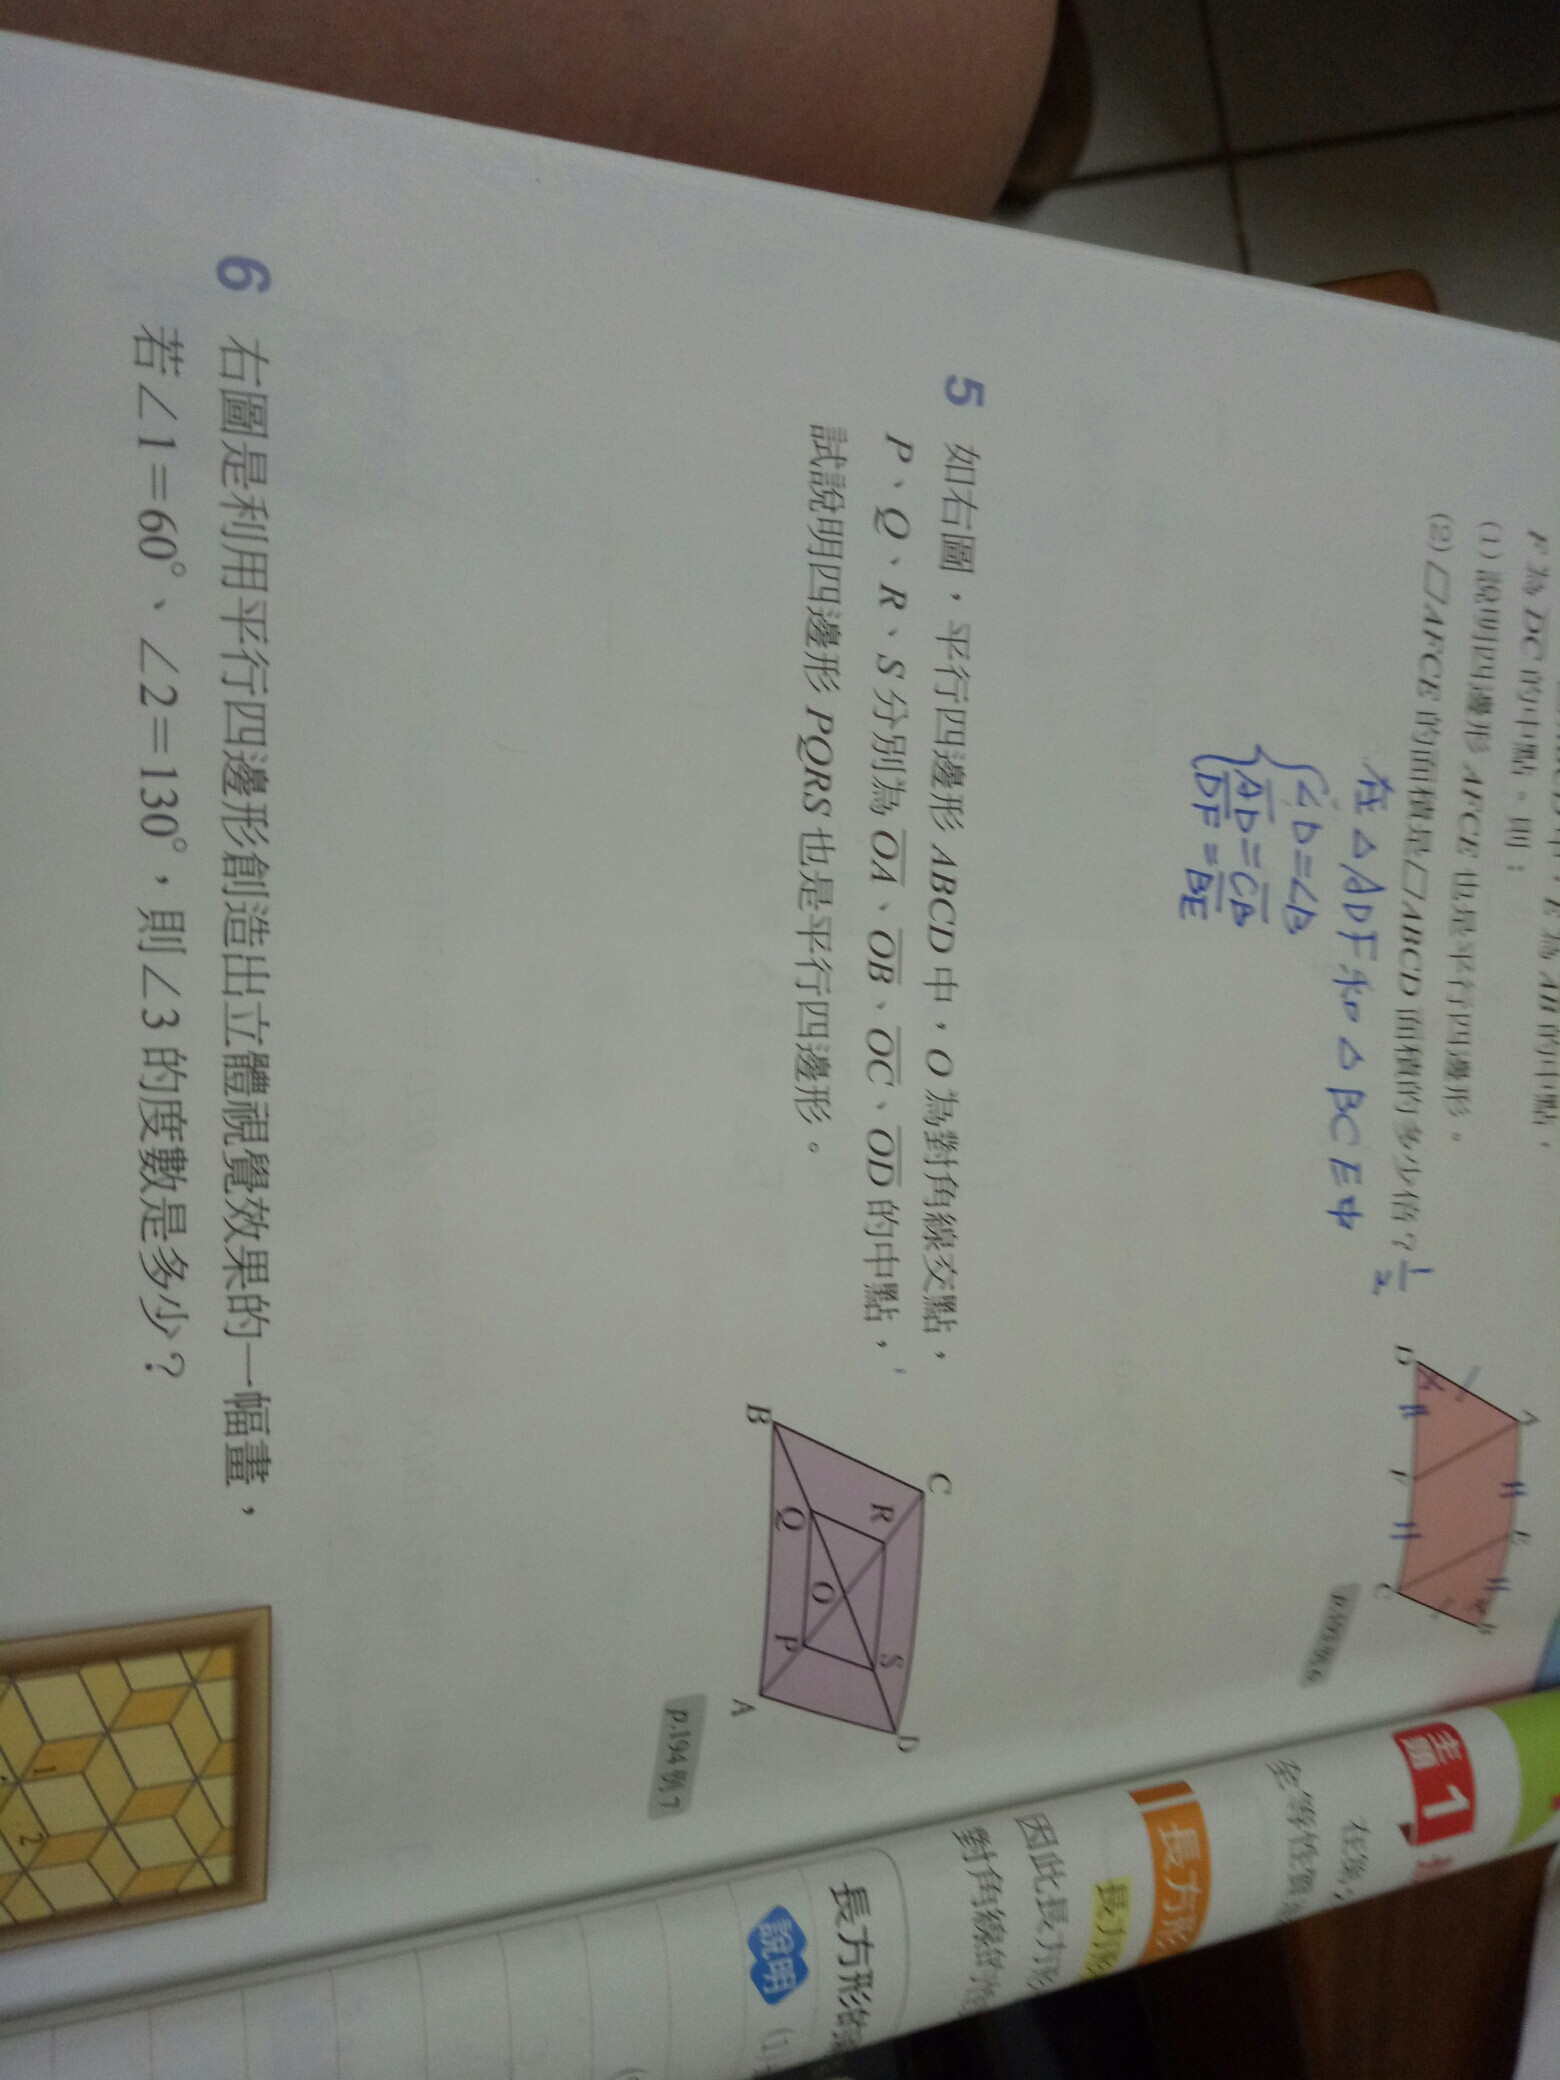 F 為 DC 的中點。則：
(1) 說明四邊形 AFCE 也是平行四邊形。
(2) ▱AFCE 的面積是▱ABCD 面積的多少倍？ 1/2
在△ADF和△BCE中
∠D=∠B
AD=CB
DF=BE
A
E
B
D
F
C
5 如右圖，平行四邊形 ABCD 中，O 為對角線交點，
P、Q、R、S 分別為 OA、OB、OC、OD 的中點，
試說明四邊形 PQRS 也是平行四邊形。
C
D
R
S
O
Q
P
B
A
p.194 例 7
6 右圖是利用平行四邊形創造出立體視覺效果的一幅畫，
若∠1=60°、∠2=130°，則∠3 的度數是多少？
1
2
主題 1
長方形
長方形
因此長方形
對角線的
長方形的
說明